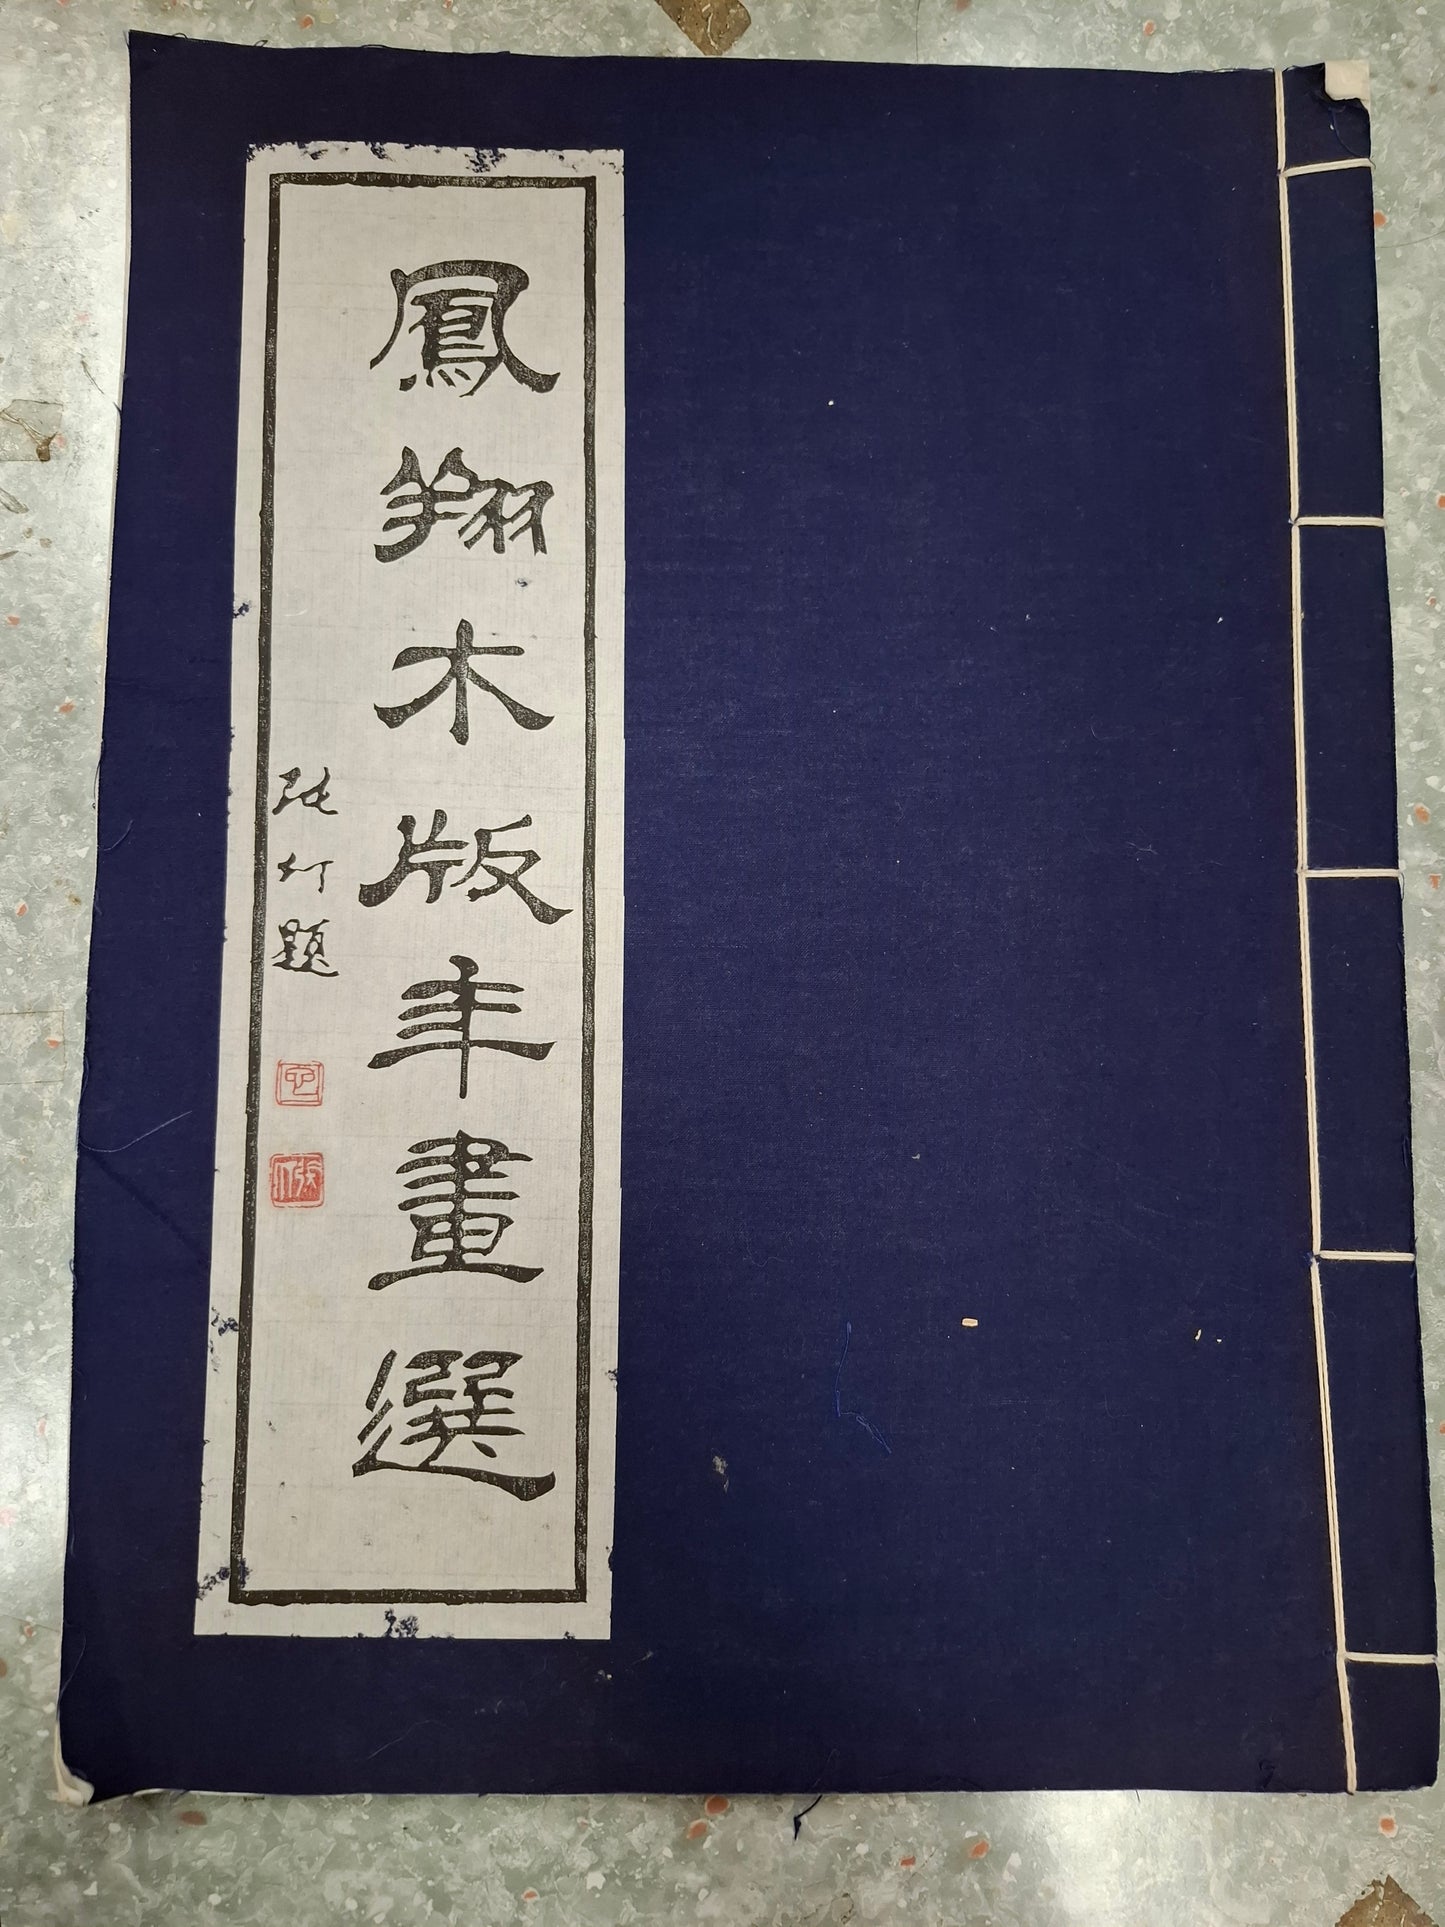 鳳翔木版年畫選
張仃題
張仃